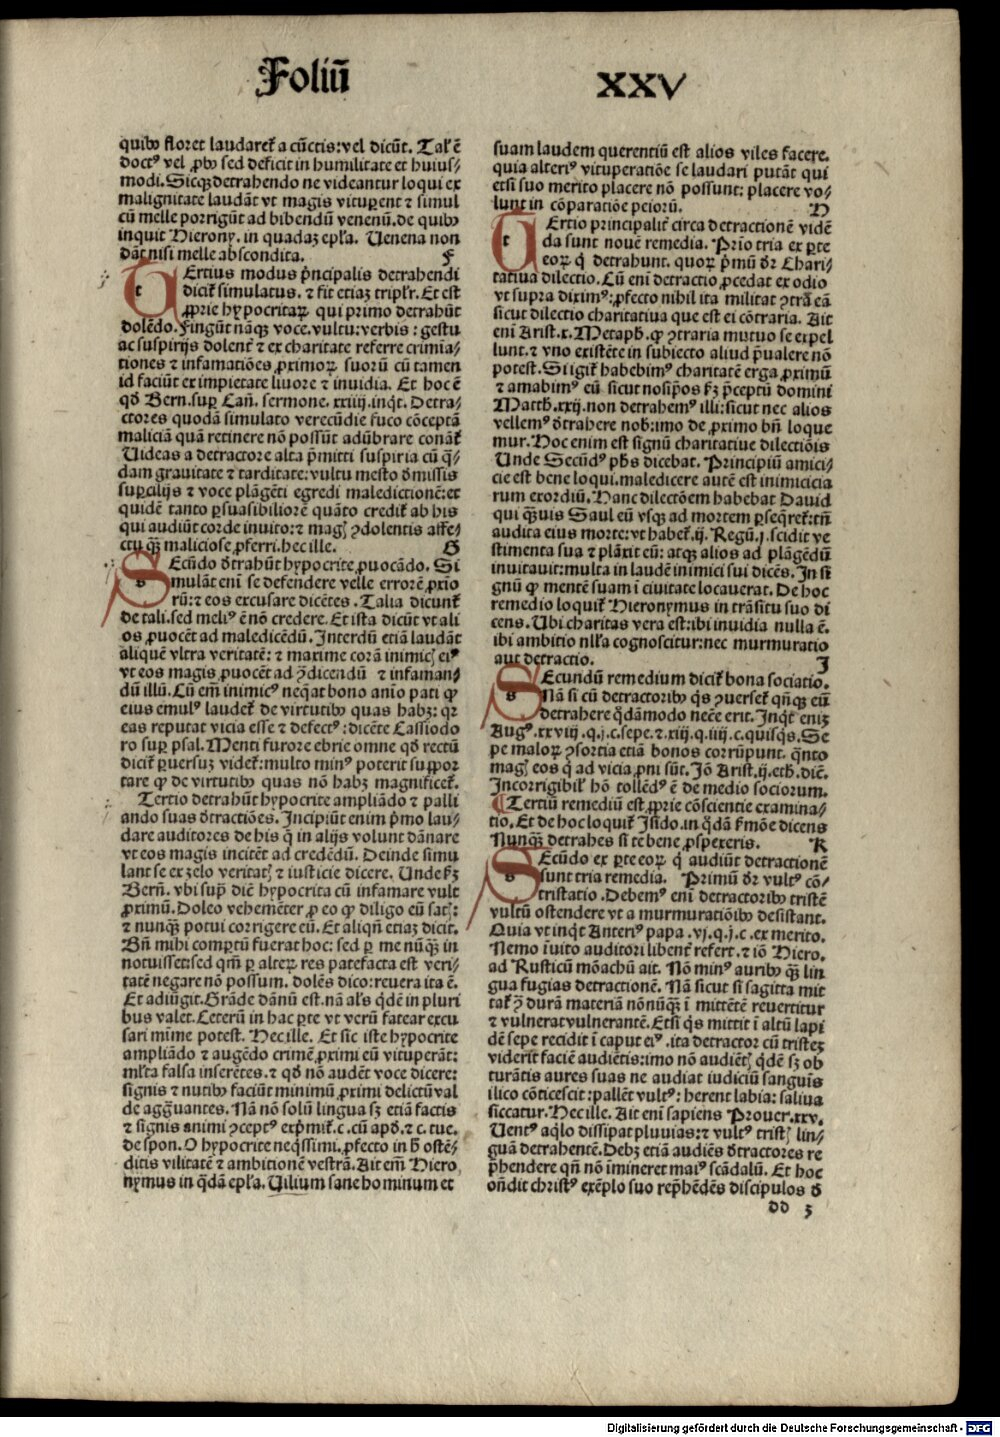 Foliũ XXV
quibꝰ floret laudaret᷑ a cũctis: vel dicũt. Tal᷑ ẽ
doctꝰ vel ꝓbꝰ sed deficit in humilitate et huius⸗
modi. Sicqꝫ detrahendo ne videantur loqui ex
malignitate laudãt vt magis vituꝑent ⁊ simul
cũ melle porrigũt ad bibendũ venenũ. de quibꝰ
inquit Hierony. in quadaꝫ epl̃a. Uenena non
dãt nisi melle abscondita. F
tErtius modus pͥncipalis detrahendi
dicit᷑ simulatus. ⁊ fit etiaꝫ tripl̃r. Et est
ꝓprie hypocritaꝝ qui primo detrahũt
dolẽdo. Fingũt nãqꝫ voce. vultu: verbis: gestu
ac suspirijs dolent᷑ ⁊ ex charitate referre crimia⸗
tiones ⁊ infamatiões ꝓximoꝝ suorũ cũ tamen
id faciũt ex impietate liuore ⁊ inuidia. Et hoc ẽ
qđ Bern. suꝑ Cañ. sermone. xxiiij. inqͥt. Detra⸗
ctores quodã simulato verecũdie fuco cõceptã
maliciã quã retinere nõ possũt adũbrare conãt᷑
Uideas a detractore alta p̃mitti suspiria cũ q̃⸗
dam grauitate ⁊ tarditate: vultu mesto d̃missis
suꝑcilijs ⁊ voce plãgẽti egredi maledictionẽ: et
quidẽ tanto ꝑsuasibiliorẽ quãto credit᷑ ab his
qui audiũt corde inuito: ⁊ magꝭ ꝯdolentis affe⸗
ctu q̃ꝫ maliciose ꝓferri. hec ille. G
sEcũdo d̃trahũt hypocrite ꝓuocãdo. Si
mulãt enĩ se defendere velle errorẽ ꝓxio
rũ: ⁊ eos excusare dicẽtes. Talia dicunt᷑
de tali. sed meliꝰ ẽ nõ credere. Et ista dicũt vt ali
os ꝓuocẽt ad maledicẽdũ. Interdũ etiã laudãt
aliquẽ vltra veritatẽ: ⁊ maxime corã inimicꝭ eiꝰ
vt eos magis ꝓuocẽt ad ꝯ̃dicendũ ⁊ infaman⸗
dũ illũ. Cũ em̃ inimicꝰ neq̃at bono anĩo pati ꝙ
eius emulꝰ laudet᷑ de virtutibꝰ quas habꝫ: qr
eas reputat vicia esse ⁊ defectꝰ: dicẽte Cassiodo
ro suꝑ psal. Menti furore ebrie omne qđ rectũ
dicit᷑ ꝑuersuꝫ videt᷑: multo minꝰ poterit suppor
tare ꝙ de virtutibꝰ quas nõ habꝫ magnificet᷑.
Tertio detrahũt hypocrite ampliãdo ⁊ palli
ando suas d̃tractiões. Incipiũt enim pͥmo lau⸗
dare auditores de his q̃ in alijs volunt dãnare
vt eos magis incitẽt ad credẽdũ. Deinde simu
lant se ex zelo veritatꝭ ⁊ iusticie dicere. Unde ẜꝫ
Berñ. vbi sup̃ diẽ hypocrita cũ infamare vult
ꝓximũ. Doleo vehemẽter ꝓ eo ꝙ diligo eũ satꝭ:
⁊ nunq̃ꝫ potui corrigere eũ. Et aliqñ etiaꝫ dicit.
Bñ mihi compertũ fuerat hoc: sed ꝑ me nũq̃ꝫ in
notuisset: sed qm̃ ꝑ alteꝝ res patefacta est veri⸗
tatẽ negare nõ possum. dolẽs dico: reuera ita ẽ.
Et adiũgit. Grãde dãnũ est. nã al̃s qͥdẽ in pluri
bus valet. Ceterũ in hac ꝑte vt verũ fatear excu
sari mĩme potest. Hec ille. Et sic iste hypocrite
ampliãdo ⁊ augẽdo crimẽ ꝓximi eũ vituperãt:
ml̃ta falsa inserẽtes. ⁊ qđ nõ audẽt voce dicere:
signis ⁊ nutibꝰ faciũt minimũ ꝓximi delictũ val
de agg̃uantes. Nã nõ solũ lingua sꝫ etiã factis
⁊ signis animi ꝯceptꝰ expͥmit᷑. c. cũ apđ. ⁊ c. tue.
de spon. O hypocrite neqͥssimi. ꝓfecto in h̃ ostẽ⸗
ditis vilitatẽ ⁊ ambitionẽ vestrã. Ait em̃ Hiero
nymus in q̃dã epl̃a. Uilium sane hominum et
suam laudem querentiũ est alios viles facere.
quia alteriꝰ vituperatiõe se laudari putãt qui
etsi suo merito placere nõ possunt: placere vo⸗
lunt in cõparatiõe peiorũ. H
tErtio principalit᷑ circa detractionẽ vidẽ
da sunt nouẽ remedia. Prĩo tria ex ꝑte
eoꝝ q̃ detrahunt. quoꝝ pͥmũ d̃r Chari⸗
tatiua dilectio. Cũ enĩ detractio ꝓcedat ex odio
vt supra diximꝰ: ꝓfecto nihil ita militat ꝯtrã eã
sicut dilectio charitatiua que est ei cõtraria. Ait
enĩ Arist. x. Metaph. ꝙ ꝯtraria mutuo se expel
lunt. ⁊ vno existẽte in subiecto aliud p̃ualere nõ
potest. Si igit᷑ habebimꝰ charitatẽ erga ꝓximũ
⁊ amabimꝰ eũ sicut nosip̃os ẜꝫ p̃ceptũ domini
Matth. xxij. non detrahemꝰ illi: sicut nec alios
vellemꝰ d̃trahere nob̃: imo de ꝓximo bñ loque
mur. Hoc enim est signũ charitatiue dilectiõis
Unde Secũdꝰ ph̃s dicebat. Principiũ amici⸗
cie est bene loqui. maledicere autẽ est inimicicia
rum exordiũ. Hanc dilectõem habebat Dauid
qui q̃uis Saul eũ vsqꝫ ad mortem ꝑseq̃ret᷑: tñ
audita eius morte: vt habet᷑. ij. Regũ. j. scidit ve
stimenta sua ⁊ plãxit eũ: atqꝫ alios ad plãgẽdũ
inuitauit: multa in laudẽ inimici sui dicẽs. In si
gnũ ꝙ mentẽ suam ĩ ciuitate locauerat. De hoc
remedio loquit᷑ Hieronymus in trãsitu suo di
cens. Ubi charitas vera est: ibi inuidia nulla ẽ.
ibi ambitio nl̃la cognoscitur: nec murmuratio
aut detractio. I
sEcundũ remedium dicit᷑ bona sociatio.
Nã si cũ detractoribꝰ qͥs ꝯuerset᷑ qñqꝫ eũ
detrahere q̃dãmodo necẽ erit. Inqͥt eniꝫ
Augꝰ. xxviij. q. j. c. sepe. ⁊. xiij. q. iiij. c. quisqͥs. Se
pe maloꝝ ꝯsortia etiã bonos corrũpunt. q̃nto
magꝭ eos q̃ ad vicia ꝓni sũt. Iõ Arist. ij. eth. diẽ.
Incorrigibil᷑ hõ tollẽdꝰ ẽ de medio sociorum.
¶Tertiũ remediũ est ꝓprie cõscientie examina⸗
tio. Et de hoc loquit᷑ Isido. in q̃dã ẜmõe dicens
Nunq̃ꝫ detrahes si te bene ꝓspexeris. K
sEcũdo ex ꝑte eoꝝ q̃ audiũt detractionẽ
sunt tria remedia. Primũ d̃r vultꝰ cõ⸗
tristatio. Debemꝰ enĩ detractoribꝰ tristẽ
vultũ ostendere vt a murmuratiõibꝰ desistant.
Quia vt inqͥt Anterꝰ papa. vj. q. j. c. ex merito.
Nemo ĩuito auditori libent᷑ refert. ⁊ iõ Hiero.
ad Rusticũ mõachũ ait. Nõ minꝰ auribꝰ q̃ꝫ lin
gua fugias detractionẽ. Nã sicut si sagitta mit
tat᷑ ꝯ̃ durã materiã nõnũq̃ꝫ ĩ mittẽtẽ reuertitur
⁊ vulnerat vulnerantẽ. Etsi qͥs mittit ĩ altũ lapi
dẽ sepe recidit ĩ caput eiꝰ. ita detractor cũ tristeꝫ
viderit faciẽ audiẽtis: imo nõ audiẽtꝭ qͥdẽ sꝫ ob
turãtis aures suas ne audiat iudiciũ sanguis
ilico cõticescit: pallẽt vultꝰ: herent labia: saliua
siccatur. Hec ille. Ait enĩ sapiens Prouer. xxv.
Uentꝰ aq̃lo dissipat pluuias: ⁊ vultꝰ tristꝭ lin⸗
guã detrahentẽ. Debꝫ etiã audiẽs d̃tractores re
p̃hendere qñ nõ ĩmineret maiꝰ scãdalũ. Et hoc
oñdit christꝰ exẽplo suo rep̃hẽdẽs discipulos d̃
dd 3
Digitalisierung gefördert durch die Deutsche Forschungsgemeinschaft - DFG